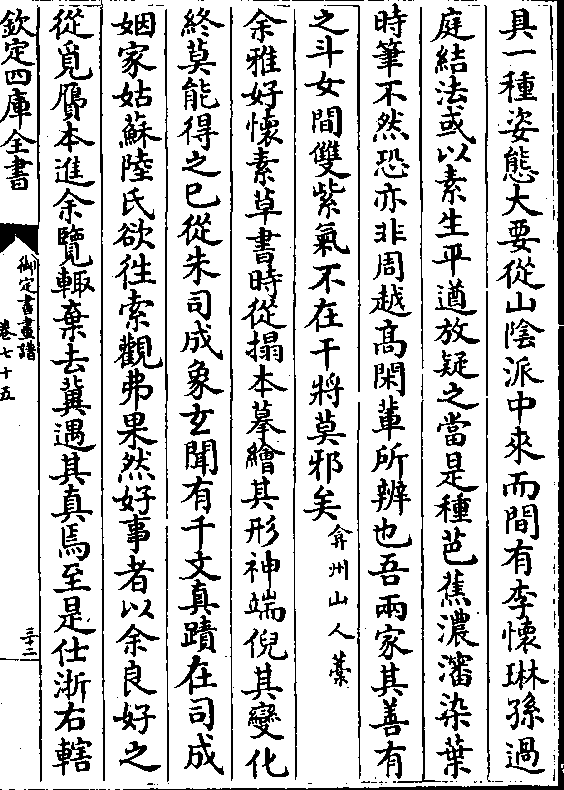 具一種姿態大要從山陰派中來而間有李懷琳孫過
庭結法或以素生平遒放疑之當是種芭蕉濃瀋染葉
時筆不然恐亦非周越高閑軰所辨也吾兩家其善有
之斗女間雙紫氣不在干將莫邪矣弇州山人藁
余雅好懷素草書時從搨本摹繪其形神端倪其變化
終莫能得之已從朱司成象玄聞有千文真蹟在司成
姻家姑蘇陸氏欲徃索觀弗果然好事者以余良好之
從覓贋本進余覽輙棄去冀遇其真焉至是仕浙右轄
欽定四庫全書
御定書畫譜
卷七十五
三十二